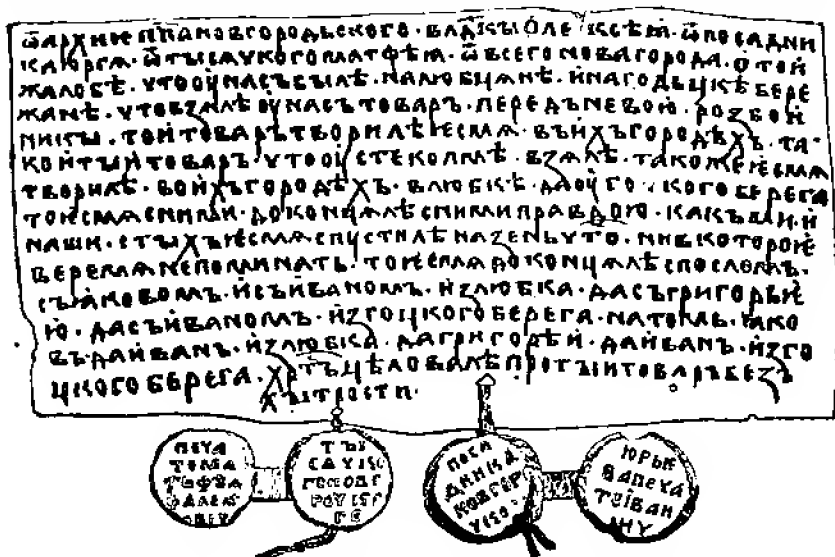 ѿархиеп҃пановгородьского · влд҃кы ѻле ксѣꙗ · ѿпосадни
каюргꙗ · ѿтысѧчкогоматфѣꙗ · ѿвсегоновагорода · отой
жалобѣ · чтооунасъбылѣ · налюбцѧнѣ · инагодьцкѣбере
жанѣ · чтовзѧлѣоунасътоваръ · передъневою · розбой
никы · тойтоварътворилѣѥсмѧ · въихъгородѣхъ · та
койтыйтоваръ · чтооустеколмѣ · взѧлѣ · такожеѥсмѧ
творилѣ · воихъгородѣхъ · влюбкѣ · даоуго цкогоберега
тоѥсмѧсними · доконцѧлѣснимиправдою · какъваи · и
наши · стыхъѥсмѧспустилѣназеньчто · нивкотороѥ
веремѧнепоминать · тоѥсмѧдоконцѧлѣспосломъ ·
съꙗковомъ · исъиваномъ · излюбка · дасъгригорьѥ
ю · дасъиваномъ · изгоцкогоберега · натомъ · ꙗко
въдаиванъ · излюбка · дагригорѣй · даиванъ · изго
цкогоберега · хр҃тъцѣловалѣпротыитоваръбезъ
хытрости
печа
тома
тъфѣа
тъı
сѧчко
поса
дника
юрьѥ
вапеча
теıван